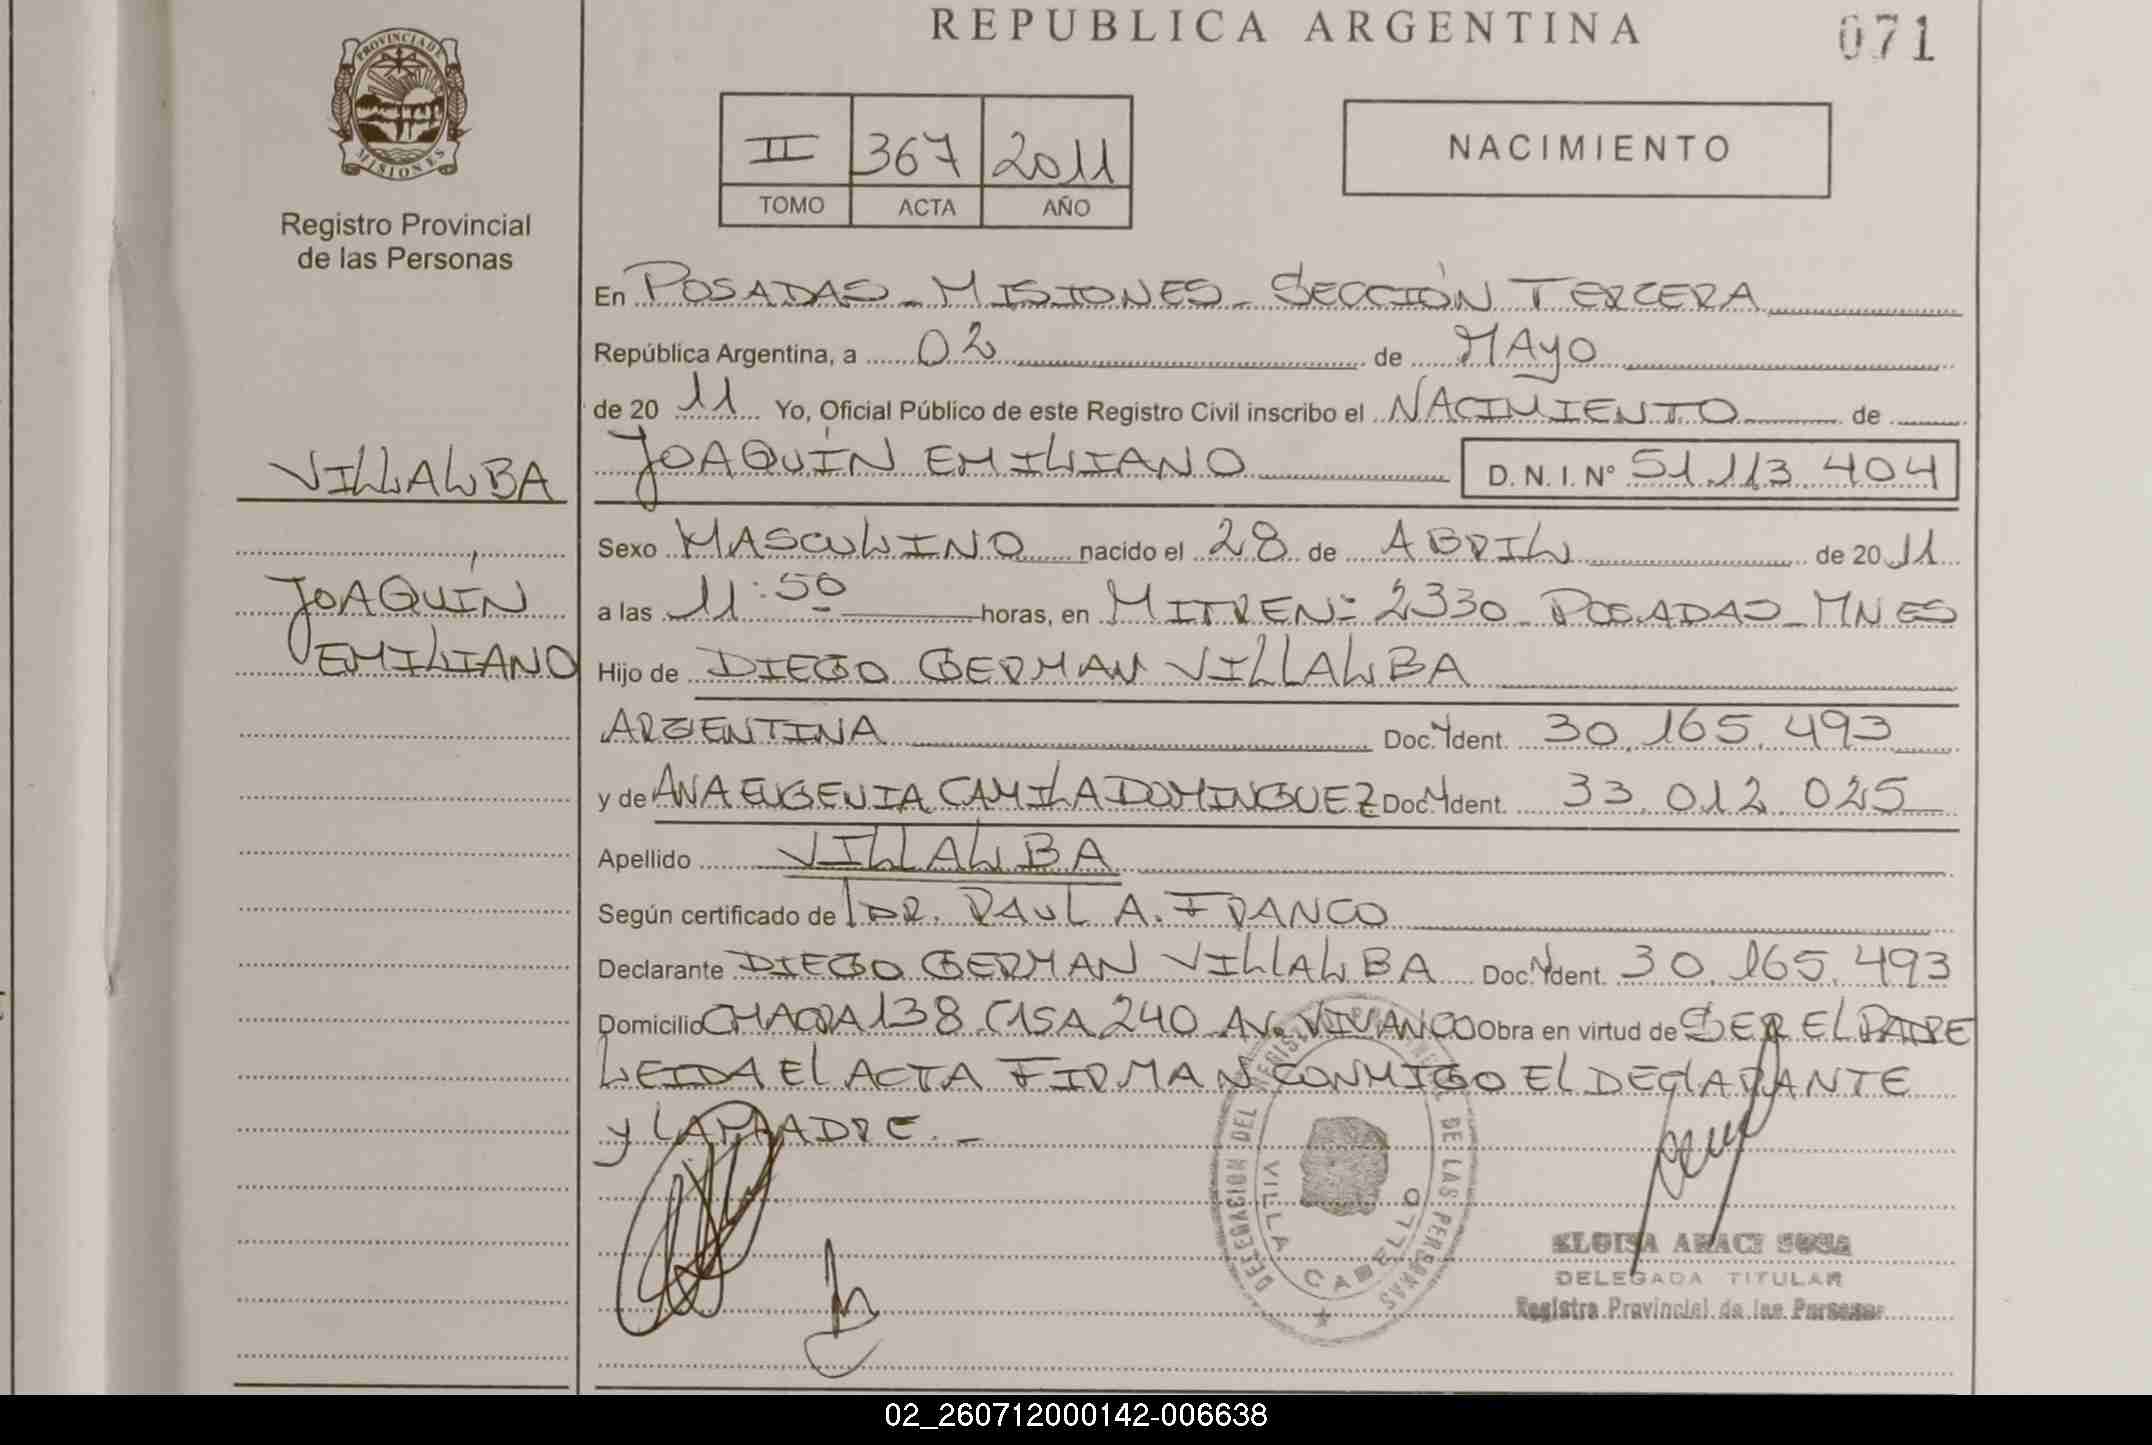 REPUBLICA ARGENTINA
071
PROVINCIA DE
MISIONES
Registro Provincial
de las Personas
II 367 2011
TOMO ACTA AÑO
NACIMIENTO
En POSADAS - MISIONES - SECCIÓN TERCERA
República Argentina, a 02 de MAYO
de 20 11 Yo, Oficial Público de este Registro Civil inscribo el NACIMIENTO de
JOAQUÍN EMILIANO D. N. I. N° 51.113.404
VILLALBA
JOAQUÍN
EMILIANO
Sexo MASCULINO nacido el 28 de ABRIL de 20 11
a las 11:50 horas, en MITRE N= 2330 - POSADAS - MNES
Hijo de DIEGO GERMAN VILLALBA
ARGENTINA Doc. Ident. 30.165.493
y de ANA EUGENIA CAMILA DOMINGUEZ Doc. Ident. 33.012.025
Apellido VILLALBA
Según certificado de DR. RAUL A. FRANCO
Declarante DIEGO GERMAN VILLALBA Doc. Ident. 30.165.493
Domicilio CHACRA 138 CASA 240 AV. VIVANCO Obra en virtud de SER EL PADRE
LEIDA EL ACTA FIRMAN CONMIGO EL DECLARANTE
Y LA MADRE. -
DELEGACION DEL REGISTRO PROVINCIAL DE LAS PERSONAS
VILLA CABELLO
ELOISA ARACI SOSA
DELEGADA TITULAR
Registro Provincial de las Personas
02_260712000142-006638